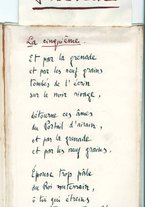 La cinquième.
Et par la grenade
et par les neuf grains
tombés de l'écrin
sur le noir rivage,
détourne ces âmes
du Portail d'airain,
et par la grenade
et par les neuf grains,
Épouse trop pâle
du Roi souterrain,
ô toi qui étreins